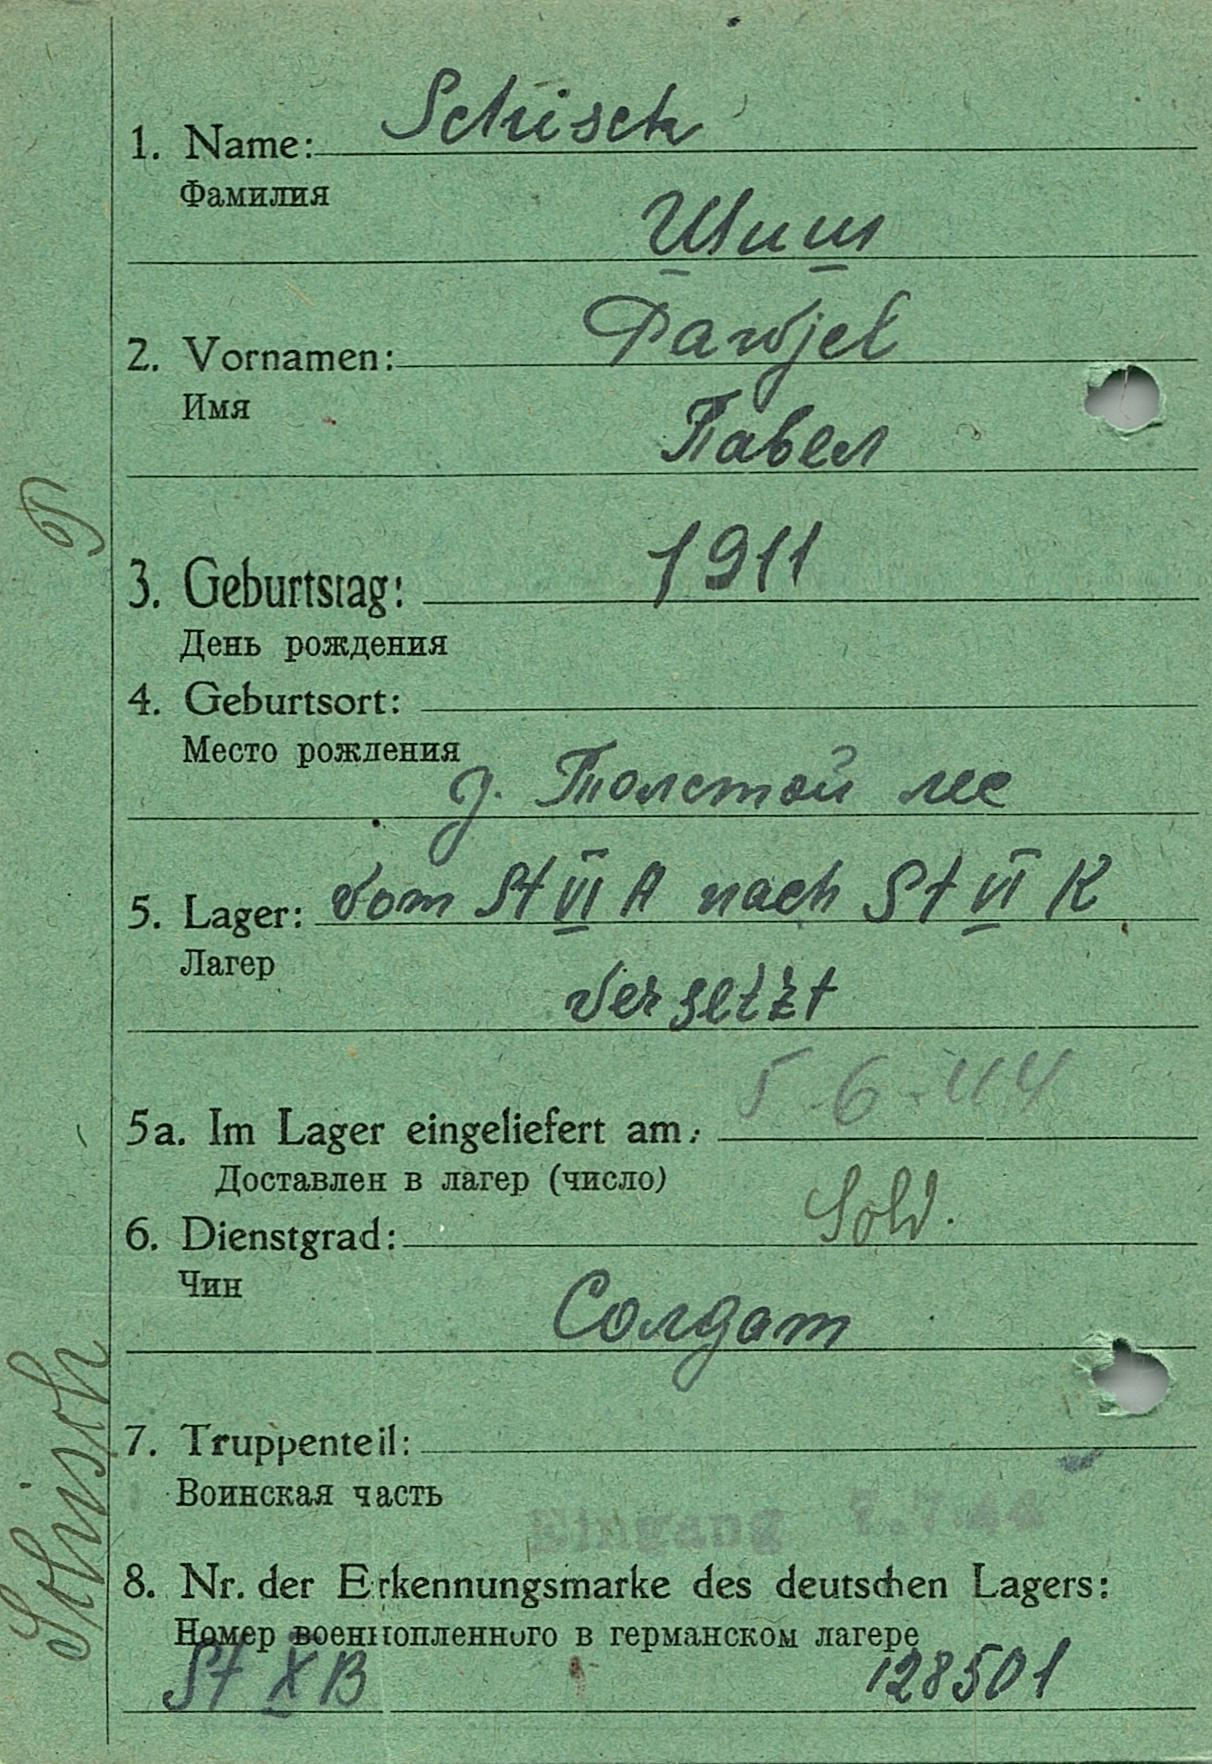 1. Name: Schisch
Фамилия
Шиш
2. Vornamen: Pawjel
Имя
Павел
3. Geburtstag: 1911
День рождения
4. Geburtsort:
Место рождения
д. Толстой лес
5. Lager: vom St VI A nach St VI K
Лагер
versetzt
5a. Im Lager eingeliefert am: 5.6.44
Доставлен в лагер (число)
6. Dienstgrad: Sold.
Чин
Солдат
7. Truppenteil:
Воинская часть
Eingang 7.7.44
8. Nr. der Erkennungsmarke des deutschen Lagers:
Номер военнопленного в германском лагере
St X B 128501
Schisch
P